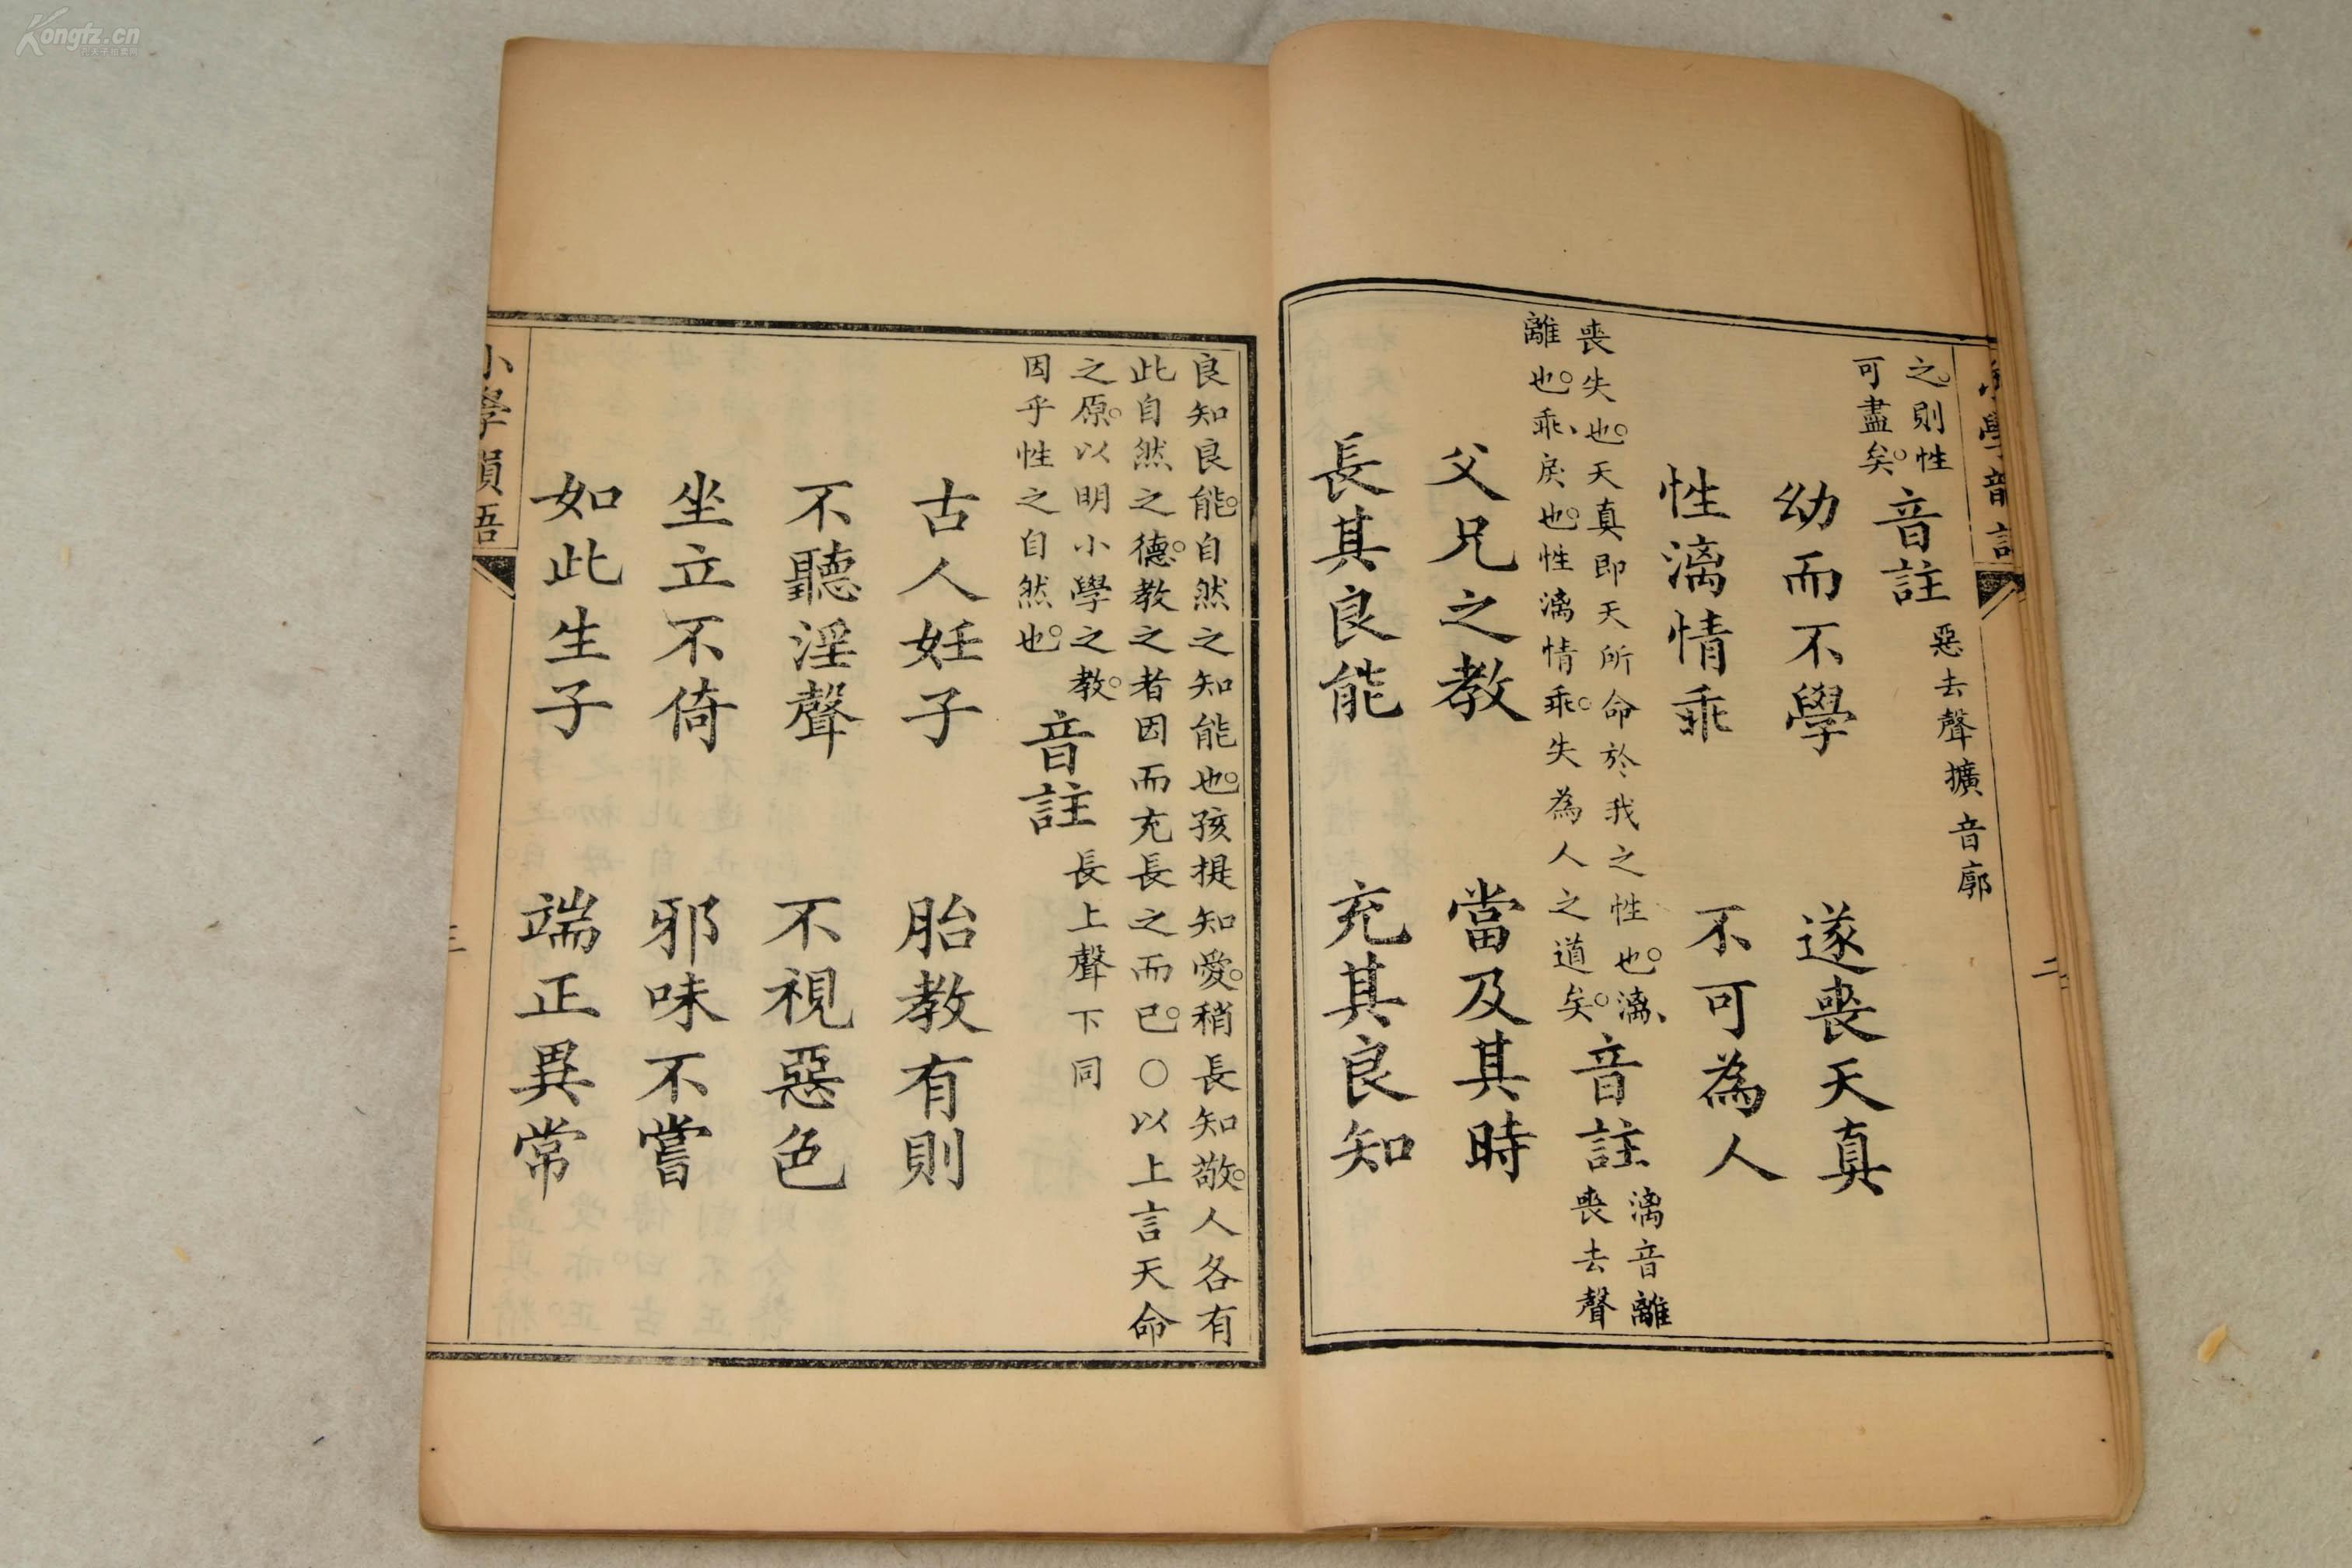 Kongfz.cn
小學韻語
二
之。則性
可盡矣。
音註
惡去聲擴音廓
幼而不學 遂喪天真
性漓情乖 不可為人
喪失也。天真即天所命於我之性也。漓、
離也。乖、戾也。性漓情乖。失為人之道矣。
音註
漓音離
喪去聲
父兄之教 當及其時
長其良能 充其良知
良知良能。自然之知能也。孩提知愛。稍長知敬。人各有
此自然之德。教之者因而充長之而已。〇以上言天命
之原。以明小學之教。
因乎性之自然也。
音註
長上聲下同
古人妊子 胎教有則
不聽淫聲 不視惡色
坐立不倚 邪味不嘗
如此生子 端正異常
小學韻語
三